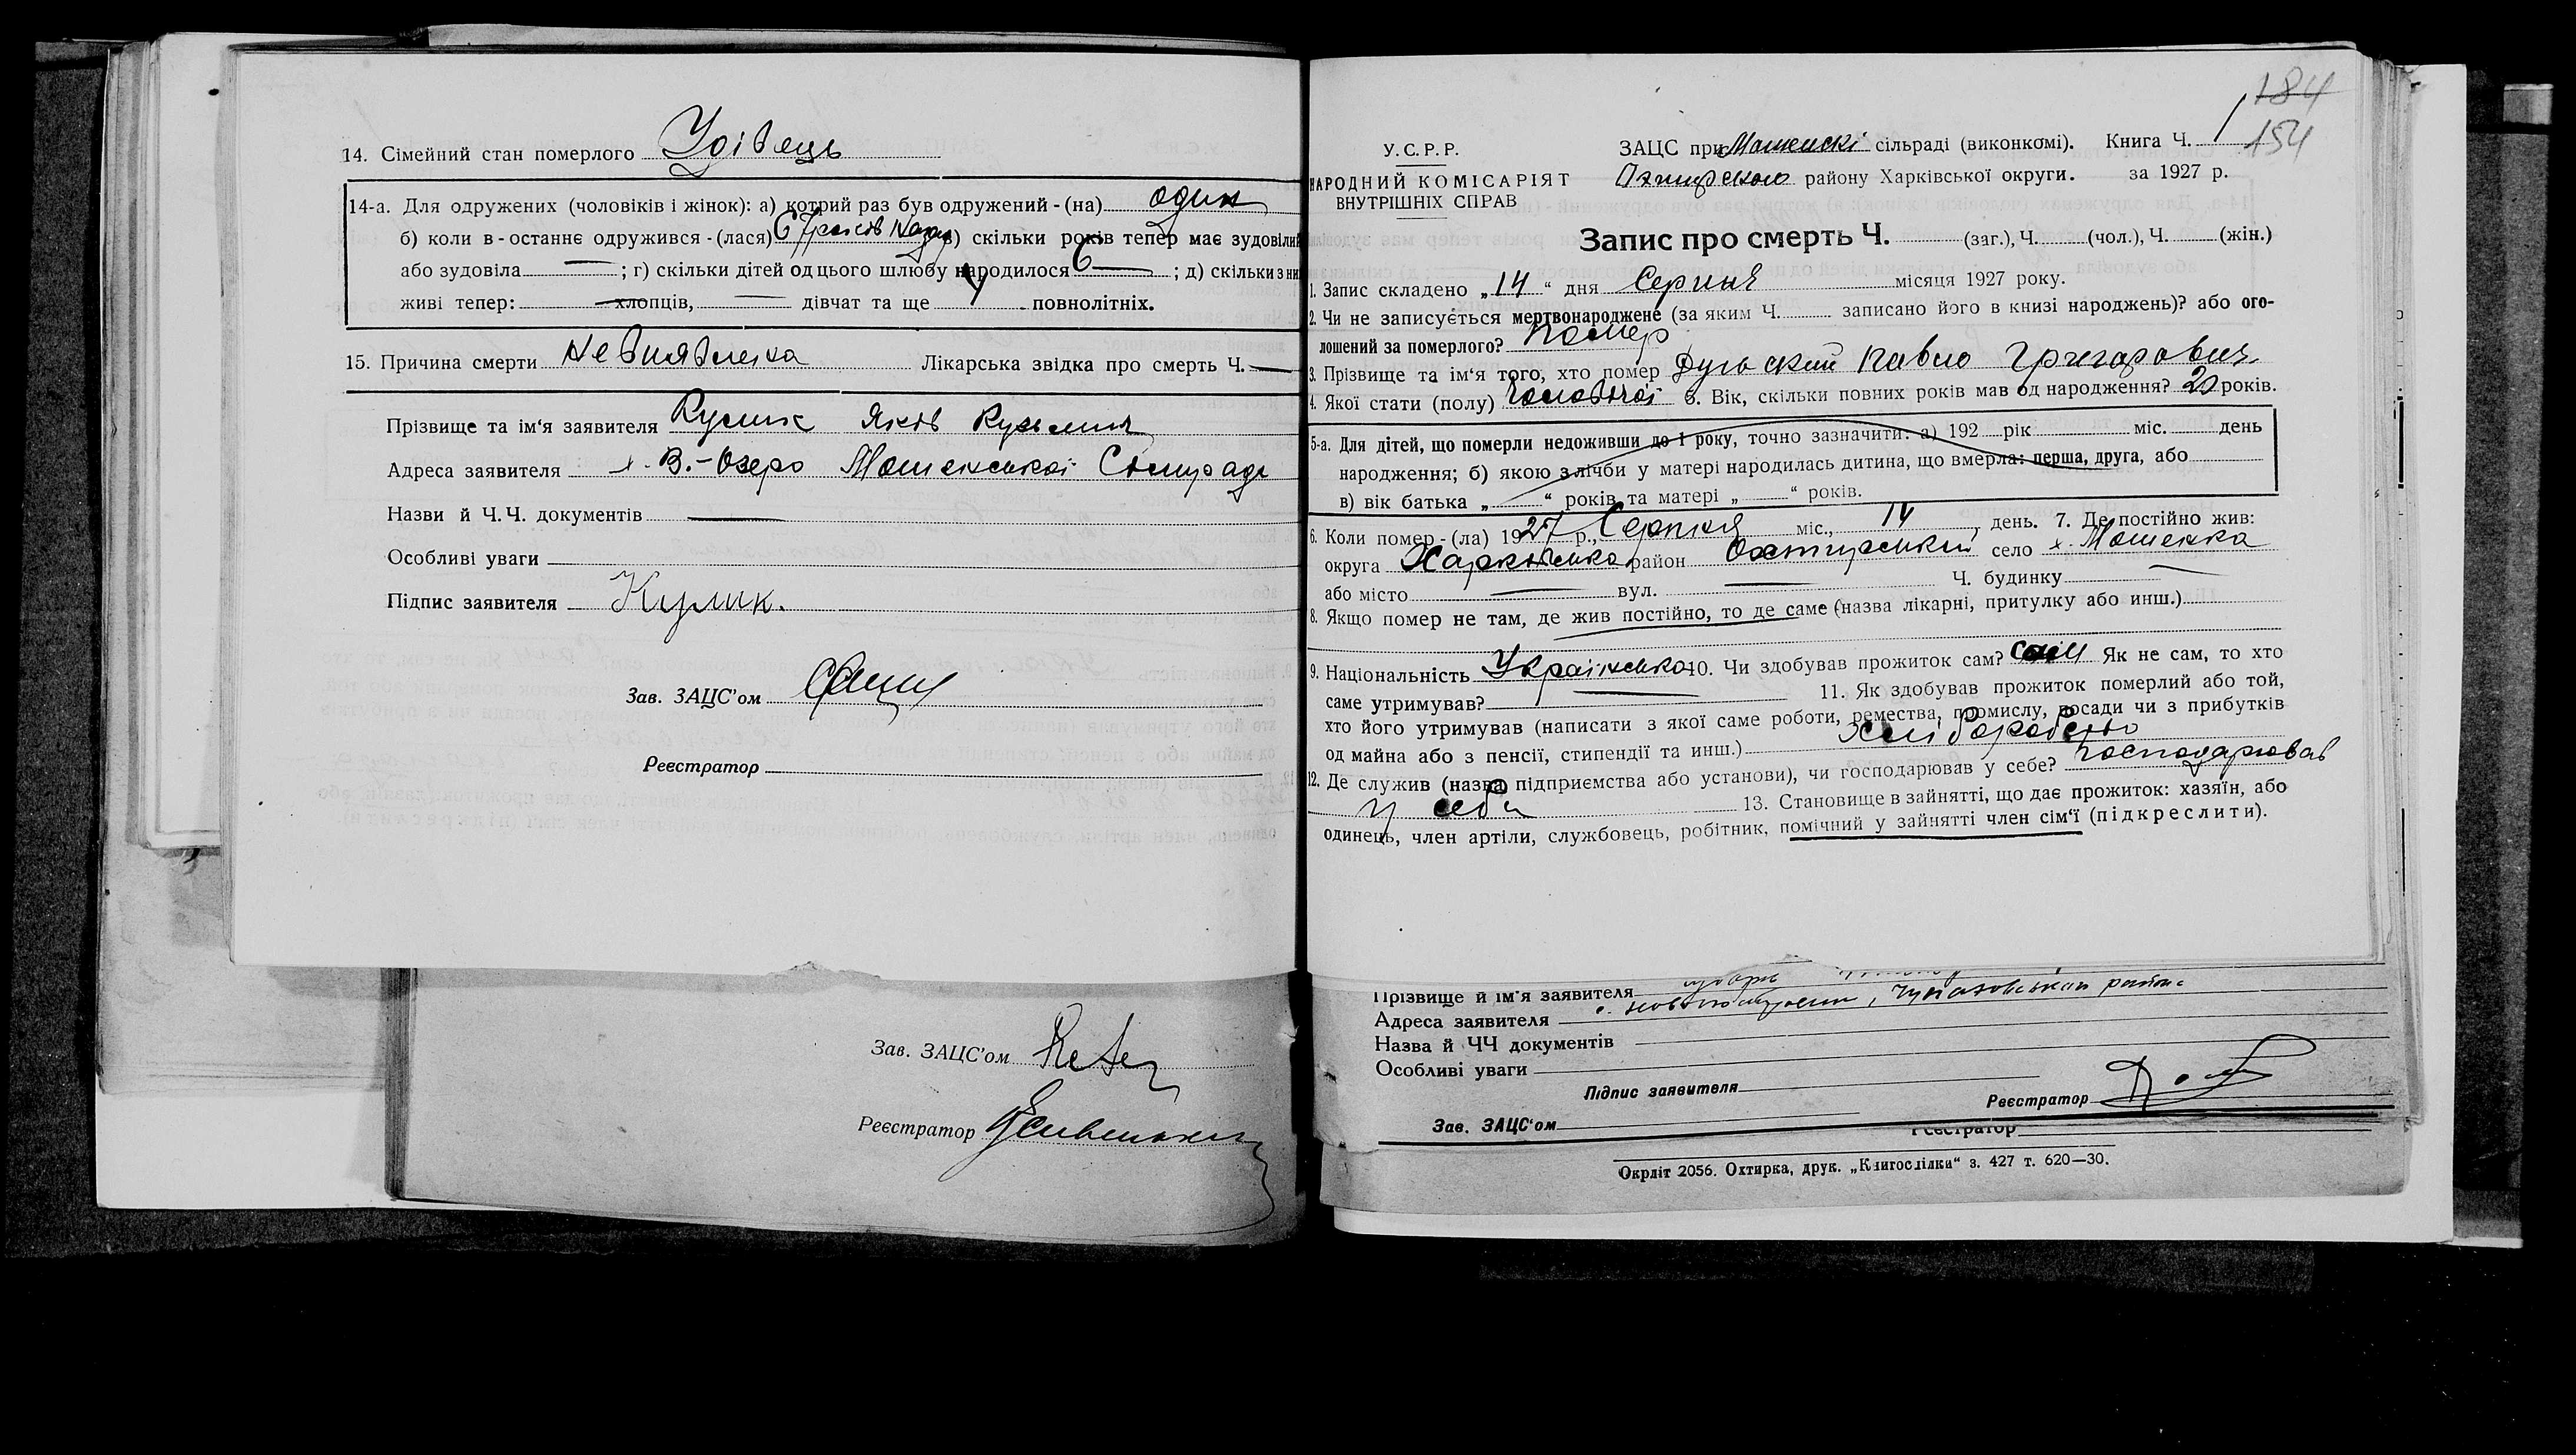 14. Сімейний стан померлого Удівець
14-а. Для одружених (чоловіків і жінок): а) котрий раз був одружений - (на) один
б) коли в - останнє одружився - (лася) 67 років назад в) скільки років тепер має зудовілий
або зудовіла — ; г) скільки дітей од цього шлюбу народилося 6 — ; д) скільки з ни
живі тепер: — хлопців, — дівчат та ще 4 повнолітніх.
15. Причина смерти Невиявлена Лікарська звідка про смерть Ч. —
Прізвище та ім'я заявителя Кулик Яків Кузьмич
Адреса заявителя х. В.-Озеро Мошенської Сільради
Назви й Ч.Ч. документів —
Особливі уваги
Підпис заявителя Кулик.
Зав. ЗАЦС'ом
Реєстратор
Зав. ЗАЦС'ом
Реєстратор
184
154
У.С.Р.Р.
НАРОДНИЙ КОМІСАРІЯТ
ВНУТРІШНІХ СПРАВ
ЗАЦС при Мошенскі сільраді (виконкомі). Книга Ч.
Охтирского району Харківської округи. за 1927 р.
Запис про смерть Ч. (заг.), Ч. (чол.), Ч. (жін.)
1. Запис складено „ 14 “ дня Серпня місяця 1927 року.
2. Чи не записується мертвонароджене (за яким Ч. записано його в книзі народжень)? або ого-
лошений за померлого? Помер
3. Прізвище та ім'я того, хто помер Павло Григорович
4. Якої стати (полу) Чоловічої 5. Вік, скільки повних років мав од народження? років.
5-а. Для дітей, що померли недоживши до 1 року, точно зазначити: а) 192 рік міс. день
народження; б) якою з лічби у матері народилась дитина, що вмерла: перша, друга, або
в) вік батька „ “ років та матері „ “ років.
6. Коли помер - (ла) 1927 р., Серпня міс., 14 день. 7. Де постійно жив:
округа Харківська район Охтирський село х. Мошенка
або місто — вул. — Ч. будинку —
8. Якщо помер не там, де жив постійно, то де саме (назва лікарні, притулку або инш.)
9. Національність Українська 10. Чи здобував прожиток сам? сам Як не сам, то хто
саме утримував? — 11. Як здобував прожиток померлий або той,
хто його утримував (написати з якої саме роботи, ремества, промислу, посади чи з прибутків
од майна або з пенсії, стипендії та инш.) хліборобство
12. Де служив (назва підприємства або установи), чи господарював у себе? господарював
у себе 13. Становище в зайнятті, що дає прожиток: хазяїн, або
одинець, член артіли, службовець, робітник, помічний у зайнятті член сім'ї (підкреслити).
Прізвище й ім'я заявителя
Адреса заявителя
Назва й ЧЧ документів
Особливі уваги
Підпис заявителя
Реєстратор
Зав. ЗАЦС'ом
Реєстратор
Окрліт 2056. Охтирка, друк. „Книгоспілка“ з. 427 т. 620—30.